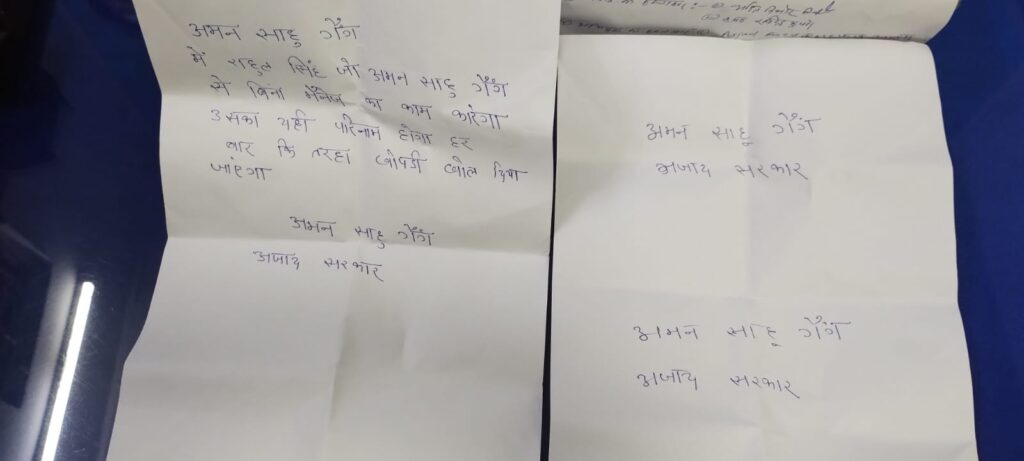 अमन साहु गैंग
मैं राहुल सिंह जो अमन साहु गैंग
से बिना मैनेज का काम करेगा
उसका यही परिनाम होगा हर
बार कि तरहा खोपडी खोल दिया
जाएगा
अमन साहु गैंग
अजाद सरकार
अमन साहू गैंग
अजाद सरकार
अमन साहू गैंग
अजाद सरकार